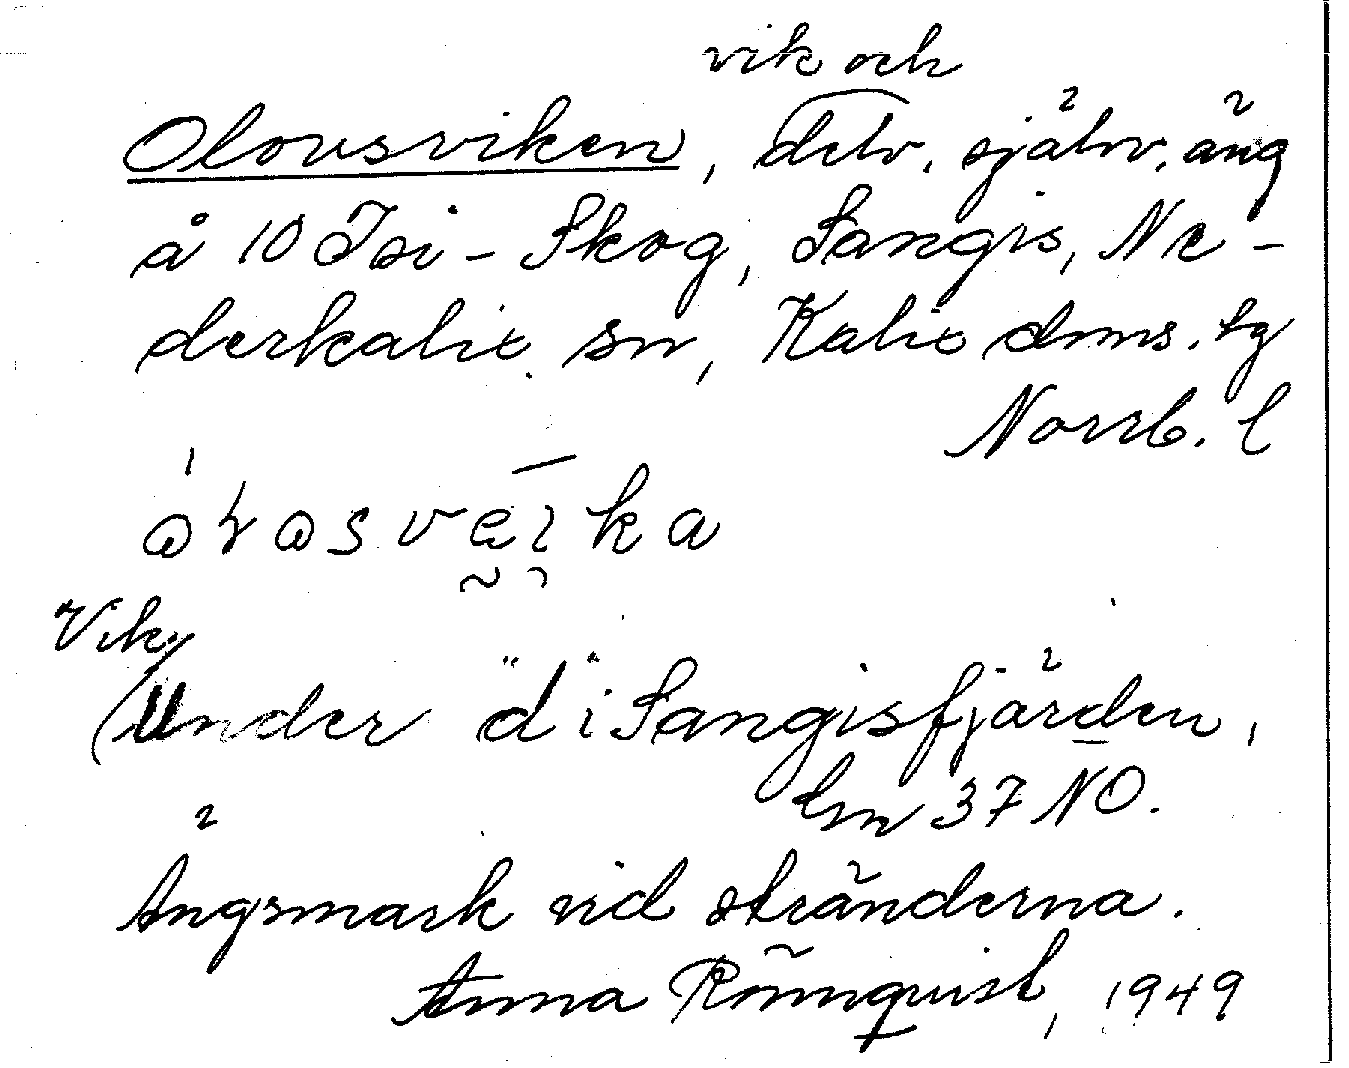 vik och
Olovsviken, delv. självv. äng
å 10 Isi-Skog, Sangis, Ne-
derkalix sn, Kalix doms. hg
Norrb. l
Vik,
(Under "d" i Sangisfjärden,
lm 37 NO.
Ängsmark vid stränderna.
Anna Rönnquist, 1949